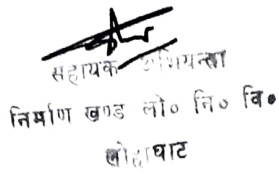 सहायक अभियन्ता
निर्माण खण्ड लो० नि० वि०
लोहाघाट